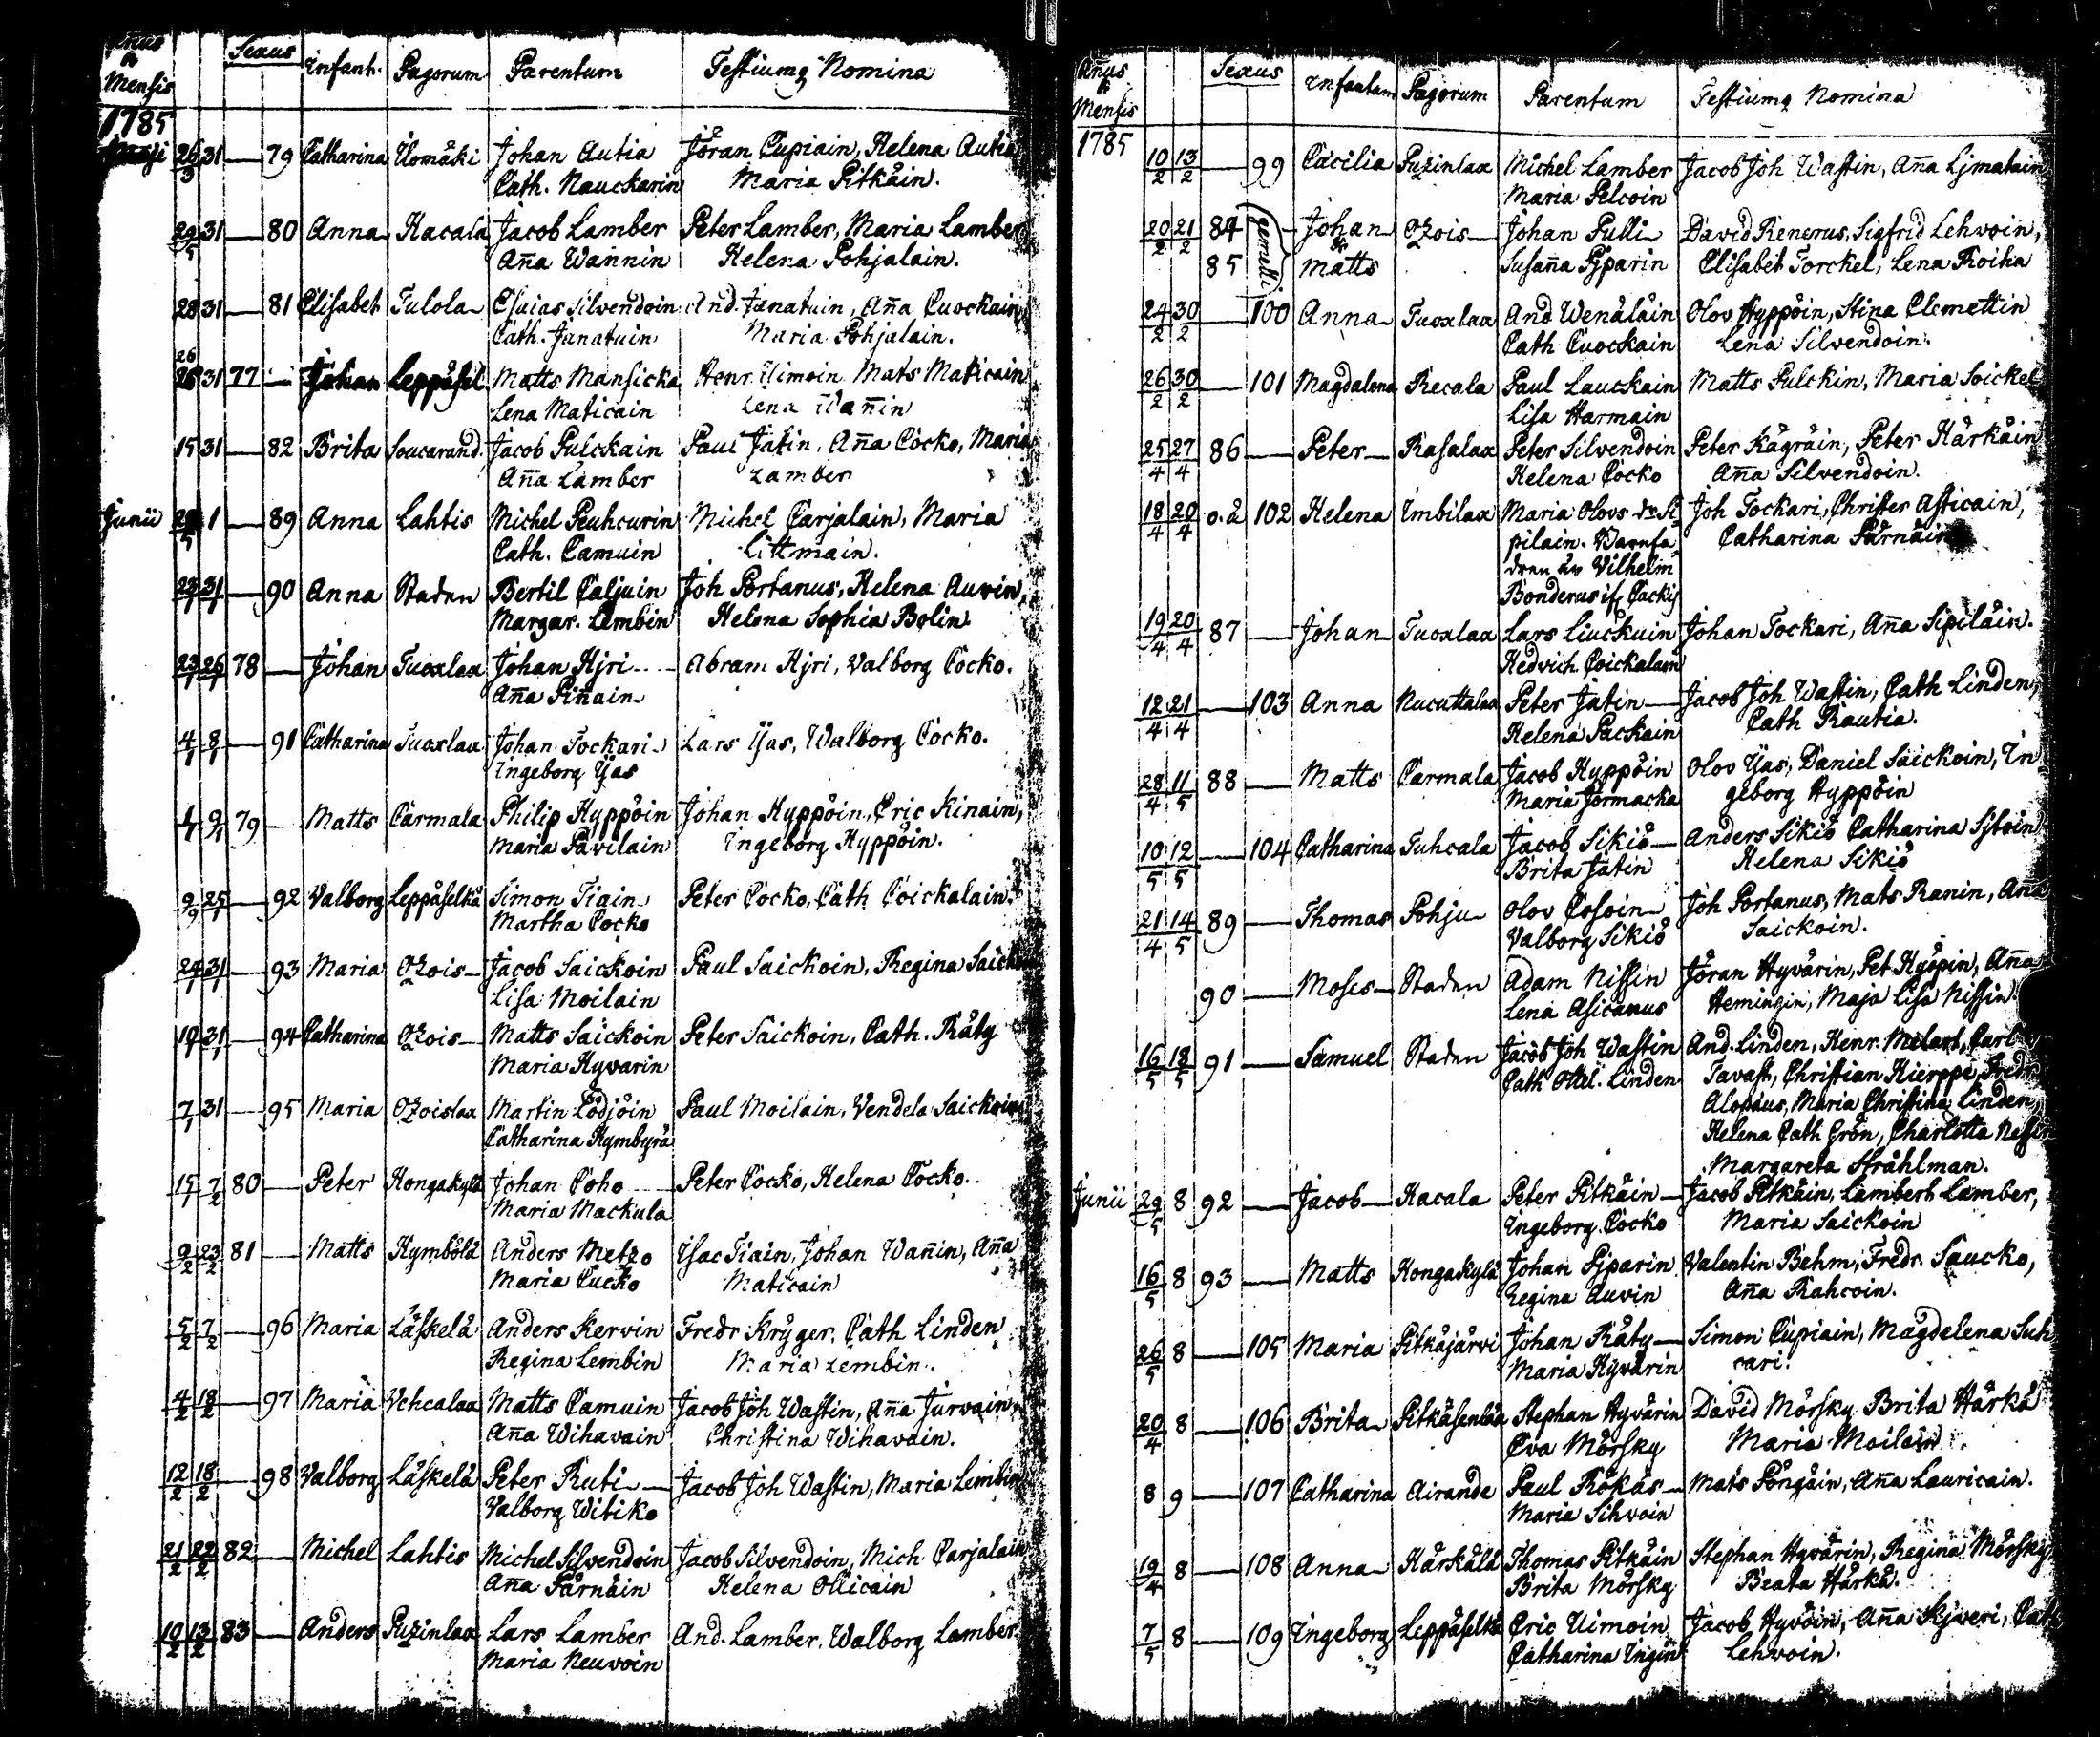 Sexus
Infant. Pagorum Parentum Testiumq Nomina
Mensis
1785
26/3 31 — 79 Catharina Uomäki Johan Autia Jöran Cupiain, Helena Autia
Cath. Nauckarin Maria Pitkäin.
29/5 31 — 80 Anna Hacala Jacob Lamber Peter Lamber, Maria Lamber
Aña Wannin Helena Pohjalain.
28 31 — 81 Elisabet Tulola Esaias Silvendoin And. Janatuin, Aña Cuockain
Cath. Janatuin Maria Pohjalain.
26
31 77 — Johan Leppäsel Matts Mansicka Henr. Uimoin Mats Maticain
Lena Maticain Lena Wañin
15 31 — 82 Brita Soucarand. Jacob Pulckain Paul Jatin, Aña Cocko, Maria
Aña Lamber Lamber
Junii 1 — 89 Anna Lahtis Michel Peuhcurin Michel Carjalain, Maria
Cath. Camuin Littmain.
23/1 31/1 — 90 Anna Staden Bertil Caljuin Joh Portanus, Helena Auvin,
Margar. Lembin Helena Sophia Bolin
23/1 26/1 78 — Johan Tuoxlax Johan Hjri Abram Hjri, Valborg Cocko.
Aña Piñain
4/1 8/1 — 91 Catharina Tuoxlax Johan Tockari Lars Ijas, Walborg Cocko.
Ingeborg Ijas
1/1 9/1 79 — Matts Carmala Philip Hyppöin Johan Hyppöin, Eric Kinain,
Maria Pavilain Ingeborg Hyppöin.
25/1 — 92 Valborg Leppäselkä Simon Tiain Peter Cocko, Cath Coickalain.
Martha Cocko
24/1 31/1 — 93 Maria Ozois Jacob Saickoin Paul Saickoin, Regina
Lisa Moilain
19/1 31/1 — 94 Catharina Ozois Matts Saickoin Peter Saickoin, Cath. Räty
Maria Hyvarin
7/1 31 — 95 Maria Ozoislax Martin Lödjöin Paul Moilain, Vendela Saickoin
Catharina Kymbyrä
15/1 7/2 80 — Peter Hongakylä Johan Coho Peter Cocko, Helena Cocko.
Maria Mackula
9/2 23/2 81 — Matts Kymbölä Anders Metzo Isac Tiain, Johan Wañin, Aña
Maria Cucko Maticain
5/2 7/2 — 96 Maria Läskelä Anders Kervin Fredr Kryger, Cath Linden
Regina Lembin Maria Lembin.
4/2 18/2 — 97 Maria Vehcalax Matts Camuin Jacob Joh Wastin, Aña Jurvain,
Aña Wihavain Christina Wihavain.
12/2 18/2 — 98 Valborg Läskelä Peter Ruti — Jacob Joh Wastin, Maria Lembin
Valborg Witiko
21/2 22/2 82 — Michel Lahtis Michel Silvendoin Jacob Silvendoin, Mich Carjalain
Aña Pärnäin Helena Ollicain
10/2 13/2 83 — Anders Puzinlax Lars Lamber And. Lamber, Walborg Lamber
Maria Neuvoin
Añus
&
Mensis
Sexus Infantum Pagorum Parentum Testiumq Nomina
1785
10/2 13/2 — 99 Cæcilia Puzinlax Michel Lamber Jacob Joh Wastin, Aña Ljmatain
Maria Pelcoin
20/2 21/2 84 gemelli Johan Ozois Johan Pulli David Renerus, Sigfrid Lehvoin,
85 & Matts Susaña Pjparin Elisabet Torckel, Lena Roiha
24/2 30/2 — 100 Anna Tuoxlax And Wenäläin Olov Hyppöin, Stina Clemettin
Cath Cuockain Lena Silvendoin.
26/2 30/2 — 101 Magdalena Recala Paul Lauckain Matts Pulckin, Maria Soickel
Lisa Harmain
25/4 27/4 86 — Peter Rasalax Peter Silvendoin Peter Kägräin, Peter Härkäin
Helena Cocko Aña Silvendoin.
18/4 20/4 o.ä 102 Helena Imbilax Maria Olovs dr Si Joh Tockari, Christer Assicain,
pilain. Barnfa Catharina Pärnäin
dren är Vilhelm
Bonderus if
19/4 20/4 87 — Johan Tuoxlax Lars Liuckuin Johan Tockari, Aña Sipiläin.
Hedvich Coickalain
12/4 21/4 — 103 Anna Nucuttalax Peter Jatin — Jacob Joh Wastin, Cath Linden,
Helena Packain Cath Rautia.
28/4 11/5 88 — Matts Carmala Jacob Hyppöin Olov Ijas, Daniel Saickoin, In
Maria Jormacka geborg Hyppöin
10/5 12/5 — 104 Catharina Tuhcala Jacob Sikiö — Anders Sikiö Catharina
Brita Jatin Helena Sikiö
21/4 14/5 89 — Thomas Pohju Olov Cosoin Joh Portanus, Mats Ranin, Aña
Valborg Sikiö Saickoin.
90 — Moses Staden Adam Nissin Jöran Hyvärin, Pet Hyöpin, Aña
Lena Asicanus Hemingin, Maja Lisa Nissin.
16/5 18/5 91 — Samuel Staden Jacob Joh Wastin And. Linden, Henr. Melart, Carl
Cath Linden Tavast, Christian Hierppe, Fredr
Alopæus, Maria Christina Linden,
Helena Cath Grön, Charlotta
Margareta Stråhlman.
Junii 29/5 8 92 — Jacob Hacala Peter Pitkäin Jacob Pitkäin, Lambert Lamber,
Ingeborg Cocko Maria Saickoin
16/5 8 93 — Matts Hongakylä Johan Pjparin Valentin Behm, Fredr. Saucko,
Regina Auvin Aña Rahcoin.
26/5 8 — 105 Maria Pitkäjärvi Johan Räty — Simon Cupiain, Magdelena Suh
Maria Hyvärin cari.
20/4 8 — 106 Brita Stephan Hyvärin David Mörsky Brita Härkä
Eva Mörsky Maria Moilain
8 9 — 107 Catharina Airande Paul Rökäs Mats Pöngäin, Aña Lauricain.
Maria Sihvoin
19/4 8 — 108 Anna Härkälä Thomas Pitkäin Stephan Hyvärin, Regina Mörsky,
Brita Mörsky Beata Härkä.
7/5 8 — 109 Ingeborg Leppäselkä Eric Uimoin Jacob Hyvöin, Aña Skjveri, Cath
Catharina Ingin Lehvoin.